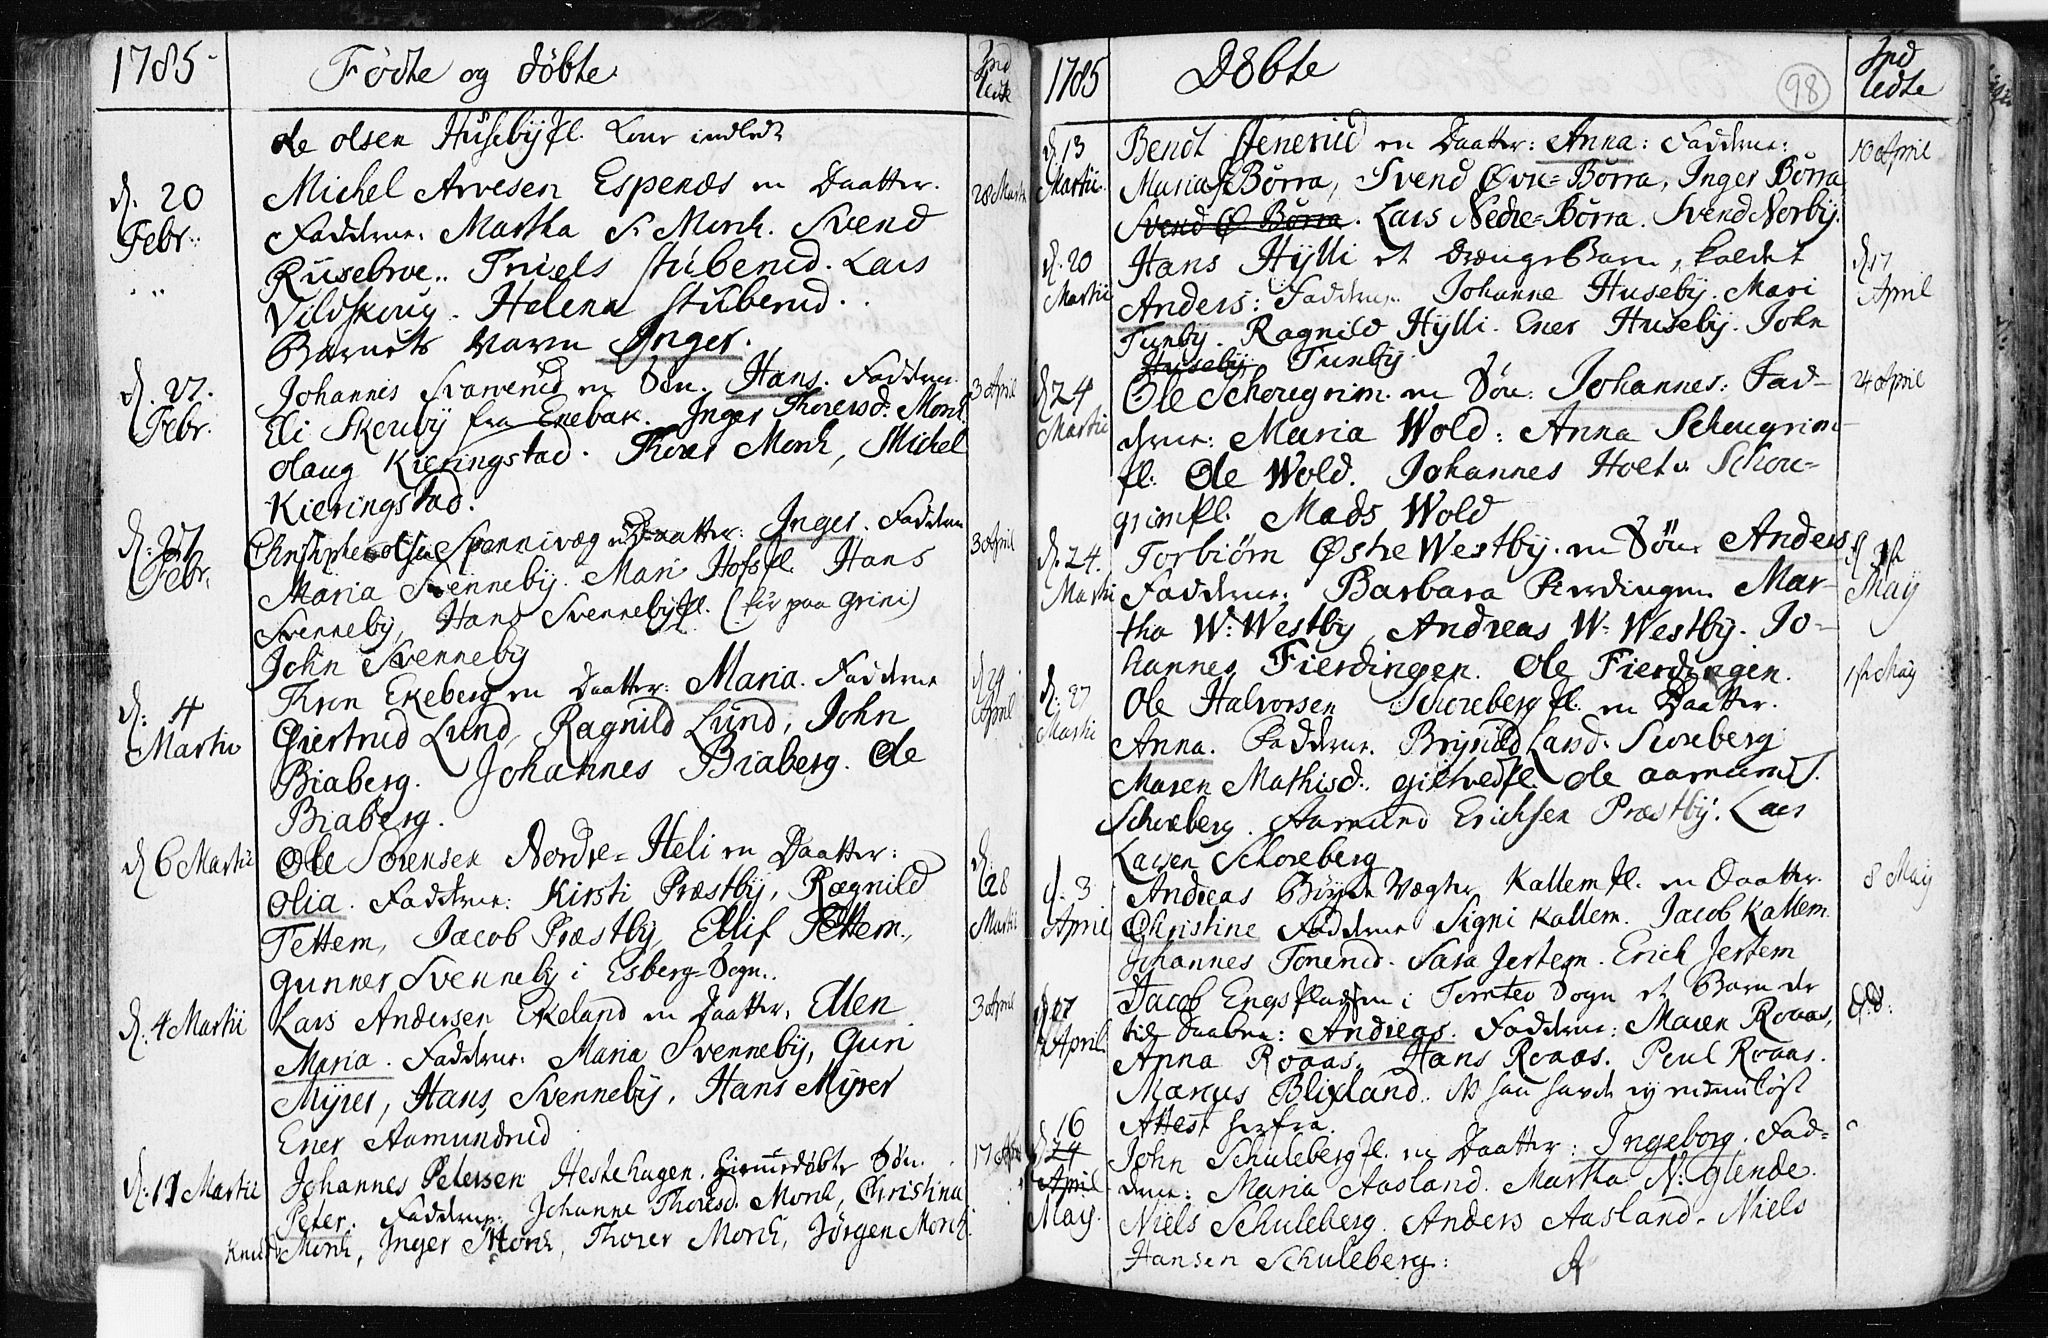 1785
Födte og döbte
Ind
ledte
Ole olsen Husebÿ fl. Cone indledt
d. 20
Febr.
Michel Arvesen Espenæs en Daatter.
28 Martii
Faddere: Martha S. Monk. Svend
Rusebroe.. Truels Stuberud. Lars
Vildskoug. Helena Stuberud.
Barnets Navn Inger.
d. 27.
Febr.
Johannes Svarverud en Sön. Hans. Faddere
3 April
Eli Skouby fra Enebak. Inger Thorersd. Monk
Olaug Kieringstad. Thorer Monk, Michel
Kieringstad.
d. 27
Febr.
Christopher olsen Spennivæg en Daatter: Inger. Faddere
3 April
Maria Svennebÿ. Mari Hofsfl. Hans
Svennebÿ, Hans Svennebÿfl. (her paa Grini)
John Svennebÿ
d. 4
Martii
Thron Ekeberg en Daatter: Maria. Faddere
d. 24
April
Giertrud Lund, Ragnild Lund, John
Biaberg. Johannes Biaberg. Ole
Biaberg.
d. 6 Martii
Ole Sörensen Nordre-Heli en Daatter:
d.
28
Martii
Olia. Faddere: Kirsti Præstbÿ, Ragnild
Tettem, Jacob Præstbÿ, Ellif Tettem,
Gunner Svennebÿ i Esberg-Sogn.
d. 4 Martii
Lars Andersen Ekeland en Daatter, Ellen
3 April
Maria. Faddere: Maria Svennebÿ, Guri
Mÿrer, Hans Svennebÿ, Hans Mÿrer
Ener Aamundrud
d. 11 Martii
Johannes Petersen Hestehagen. hiemmedöbte Sön.
17 April
Peter. Faddere: Johanne Thoresd. Monk, Christina
Knudsd Monk, Inger Monk, Thorer Monk, Jörgen Monk.
1785
Döbte
98
Ind
ledte
d. 13
Martii.
Bendt Stenerud en Daatter: Anna: Faddere:
10 April
Maria Börra, Svend Øvre-Börra, Inger Börra
Svend Ø Börra. Lars Nedre-Börra. Svend Norbÿ.
d. 20
Martii
Hans Hÿlli et DrengeBarn, kaldet
d. 17
April
Anders: Faddere. Johanne Husebÿ. Mari
Tunbÿ. Ragnild Hÿlli. Ener Husebÿ. John
Husebÿ Tunbÿ
d. 24
Martii
Ole Schougrim. en Sön: Johannes: Fad-
24 April
dere: Maria Wold: Anna Schougrim-
fl. Ole Wold. Johannes Holt v. Schou-
grimfl. Mads Wold
d. 24.
Martii
Torbiörn Østre Westbÿ. en Sön Anders
d. 1st
Maÿ
Faddere: Barbara Fierdingen Mar-
tha W: Westbÿ, Andreas W: Westbÿ. Jo-
hannes Fierdingen. Ole Fierdingen.
d. 27
Martii
Ole Halvorsen Schoreberg fl. en Daatter.
1st Maÿ
Anna. Faddere. Brÿnild Larsd. Scoreberg
Maren Mathisd. Giltvedfl. Ole Aamund S.
Schoreberg. Aamund Erichsen Præstbÿ. Lars
Larsen Schoreberg
d. 3
April
Andreas Vægter Kallem fl. en Daatter.
8 Maÿ
Christine Faddere Signi Kallem. Jacob Kallem.
Johannes Tonerud. Sara Jertem. Erich Jertem
d. 17
April
Jacob Engs Pladsen i Tomter Sogn et Barn der
d. d.
til Daaben: Andreas. Faddere: Maren Roaas,
Anna Roaas, Hans Roaas. Poul Roaas.
Marcus Blixland. NB han havde ej indløst
Attest herfra.
16
d. 24
April
Maÿ.
John Schuleberg fl. en Daatter: Ingeborg. Fad-
dere: Maria Aasland. Martha N: Glende.
Niels Schuleberg. Anders Aasland. Niels
Hansen Schuleberg: